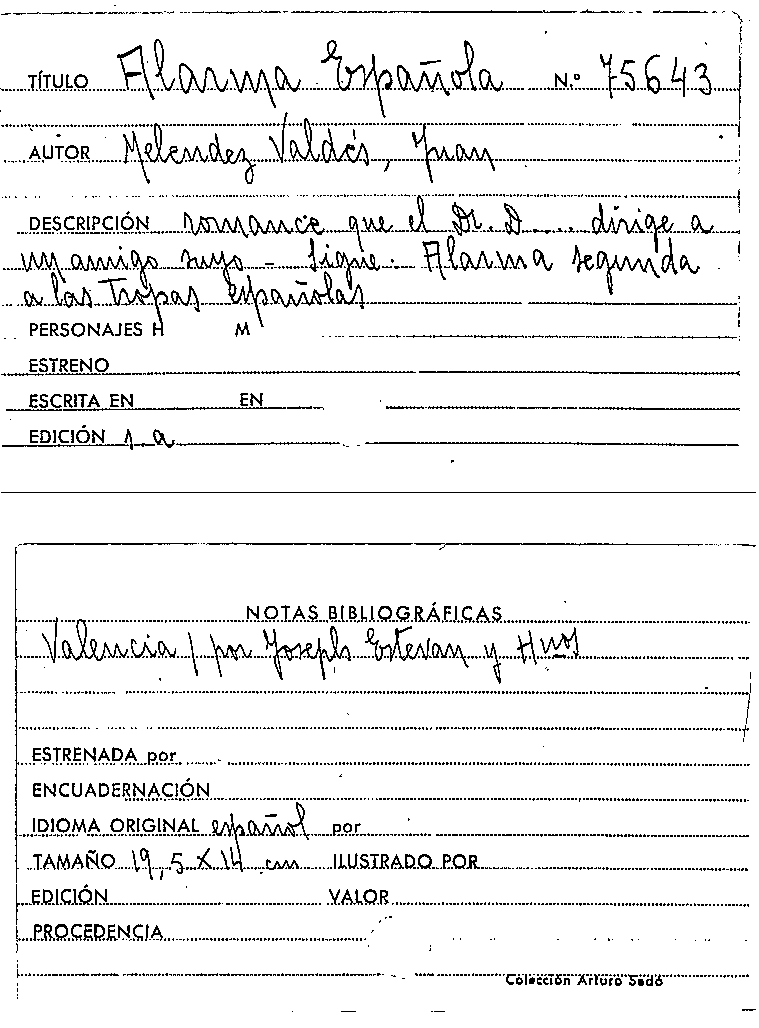 TÍTULO Alarma Española N.º 75643
AUTOR Melendez Valdés, Juan
DESCRIPCIÓN romance que el Dr. D.... dirige a
un amigo suyo - Sigue. Alarma segunda
a las Tropas españolas
PERSONAJES H M
ESTRENO
ESCRITA EN EN
EDICIÓN 1 a
NOTAS BIBLIOGRÁFICAS
Valencia / por Joseph Estevan y Hnos
ESTRENADA por
ENCUADERNACIÓN
IDIOMA ORIGINAL español por
TAMAÑO 19,5 X 14 cm ILUSTRADO POR
EDICIÓN VALOR
PROCEDENCIA
Colección Arturo Sedó